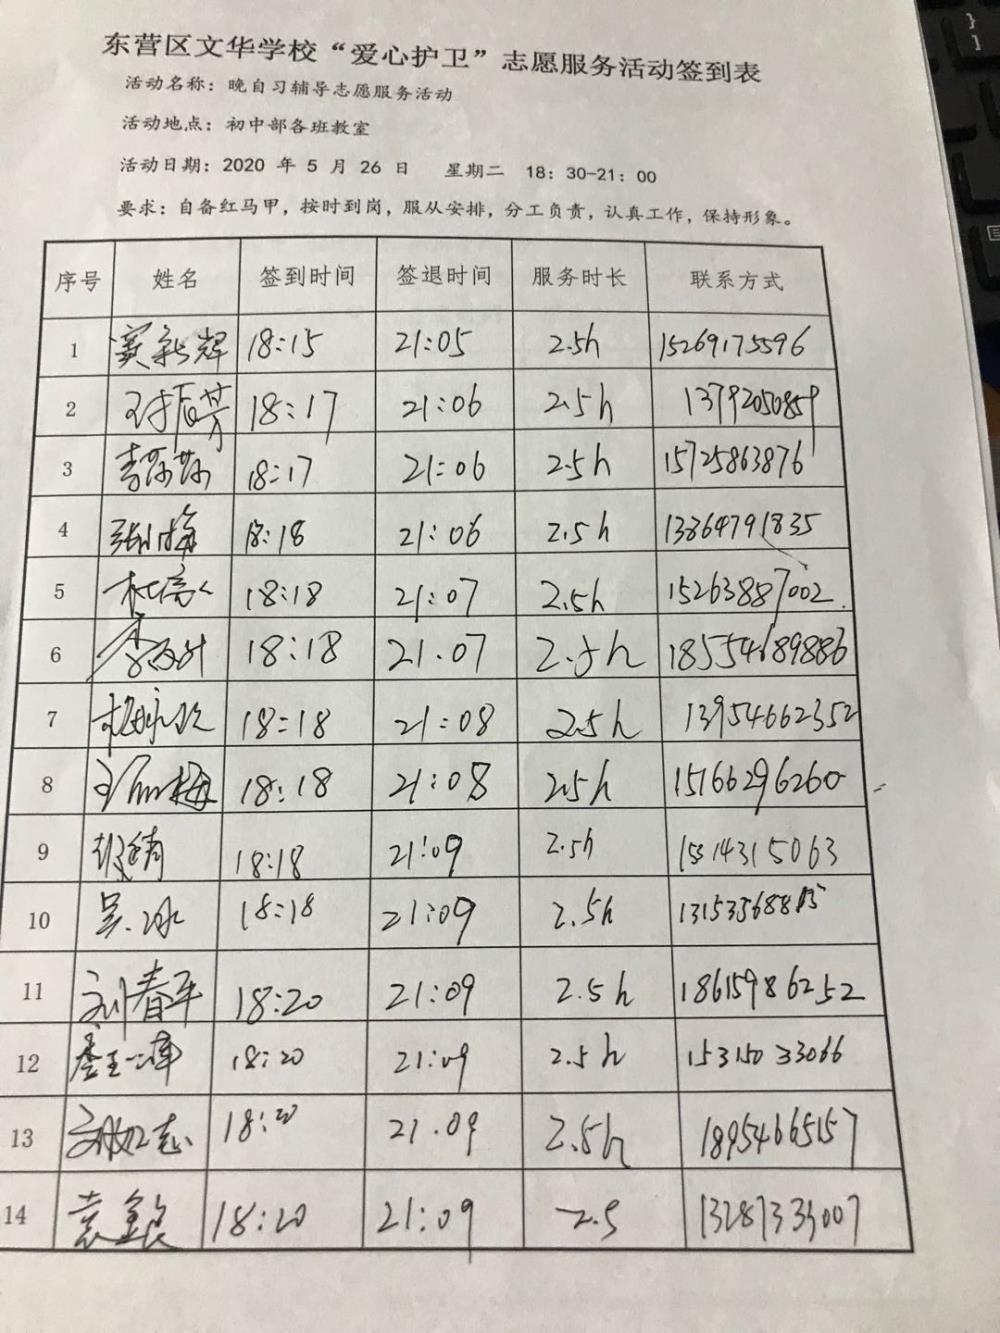 东营区文华学校“爱心护卫”志愿服务活动签到表
活动名称：晚自习辅导志愿服务活动
活动地点：初中部各班教室
活动日期：2020 年 5 月 26 日 星期二 18：30-21：00
要求：自备红马甲，按时到岗，服从安排，分工负责，认真工作，保持形象。
序号 姓名 签到时间 签退时间 服务时长 联系方式
1 18:15 21:05 2.5h 15269175596
2 18:17 21:06 2.5h 13792050859
3 18:17 21:06 2.5h 15725863876
4 张梅 18:18 21:06 2.5h 13364791835
5 18:18 21:07 2.5h 15263887002
6 18:18 21.07 2.5h 18554689886
7 18:18 21:08 2.5h 13954662352
8 18:18 21:08 2.5h 15166296260
9 18:18 21:09 2.5h 15314315063
10 吴冰 18:18 21:09 2.5h
11 刘春平 18:20 21:09 2.5h 18615986252
12 18:20 21:09 2.5h 15315033066
13 18:20 21.09 2.5h 18954665157
14 18:20 21:09 2.5 13287333007
}
]